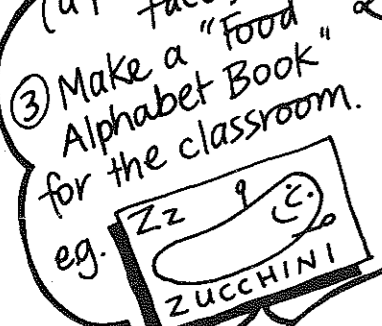 "Food
③ Make a
Alphabet Book"
for the classroom.
eg.
Zz
ZUCCHINI